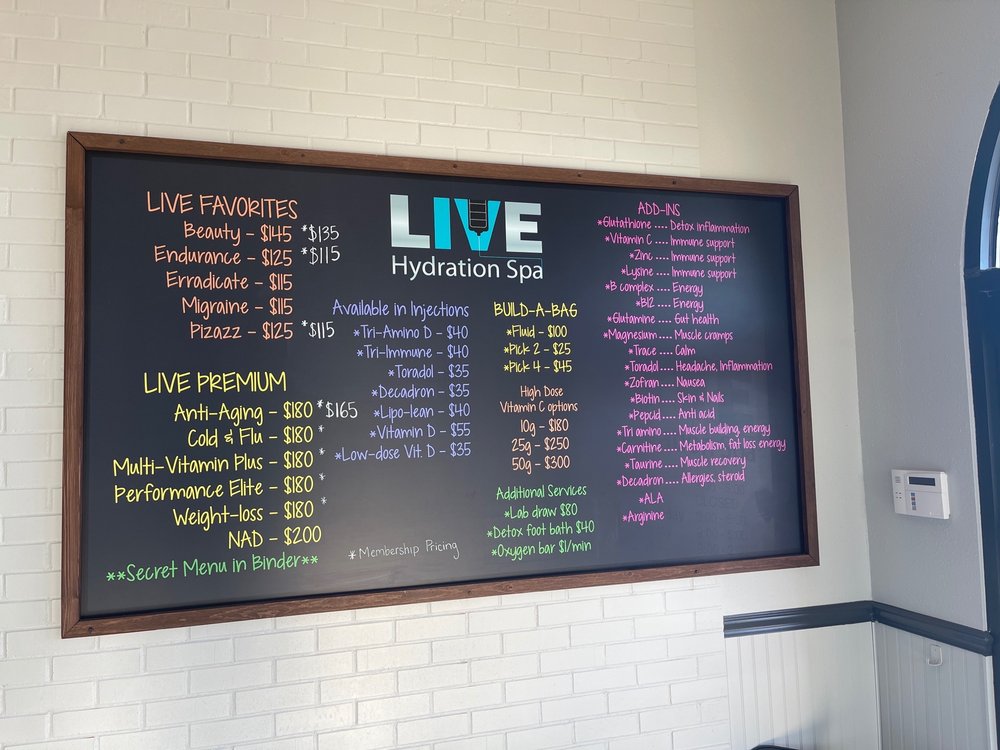 LIVE FAVORITES
Beauty - $145 *$135
Endurance - $125 *$115
Erradicate - $115
Migraine - $115
Pizazz - $125 *$115
LIVE PREMIUM
Anti-Aging - $180 *$165
Cold & Flu - $180 *
Multi-Vitamin Plus - $180 *
Performance Elite - $180 *
Weight-loss - $180 *
NAD - $200
**Secret Menu in Binder**
LIVE
Hydration Spa
Available in Injections
*Tri-Amino D - $40
*Tri-Immune - $40
*Toradol - $35
*Decadron - $35
*Lipo-lean - $40
*Vitamin D - $55
*Low-dose Vit. D - $35
*Membership Pricing
BUILD-A-BAG
*Fluid - $100
*Pick 2 - $25
*Pick 4 - $45
High Dose
Vitamin C options
10g - $180
25g - $250
50g - $300
Additional Services
*Lab draw $80
*Detox foot bath $40
*Oxygen bar $1/min
ADD-INS
*Glutathione .... Detox Inflammation
*Vitamin C .... Immune support
*Zinc .... Immune support
*Lysine .... Immune support
*B complex .... Energy
*B12 .... Energy
*Glutamine .... Gut health
*Magnesium .... Muscle cramps
*Trace .... Calm
*Toradol .... Headache, Inflammation
*Zofran .... Nausea
*Biotin .... Skin & Nails
*Pepcid .... Anti acid
*Tri amino .... Muscle building, energy
*Carnitine .... Metabolism, fat loss energy
*Taurine .... Muscle recovery
*Decadron .... Allergies, steroid
*ALA
*Arginine